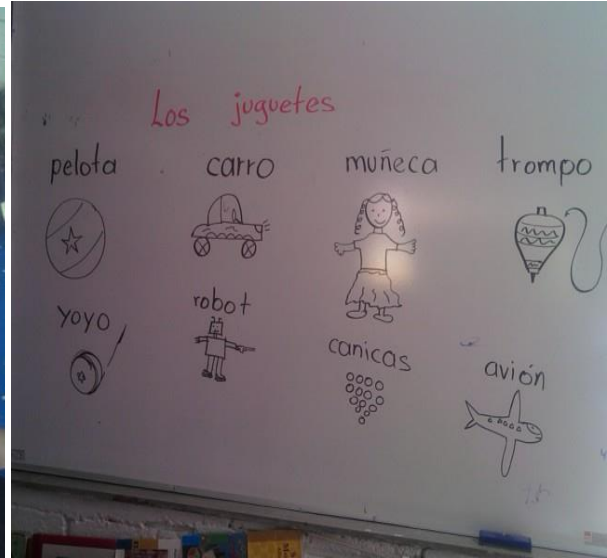 Los juguetes
pelota carro muñeca trompo
yoyo robot canicas avión